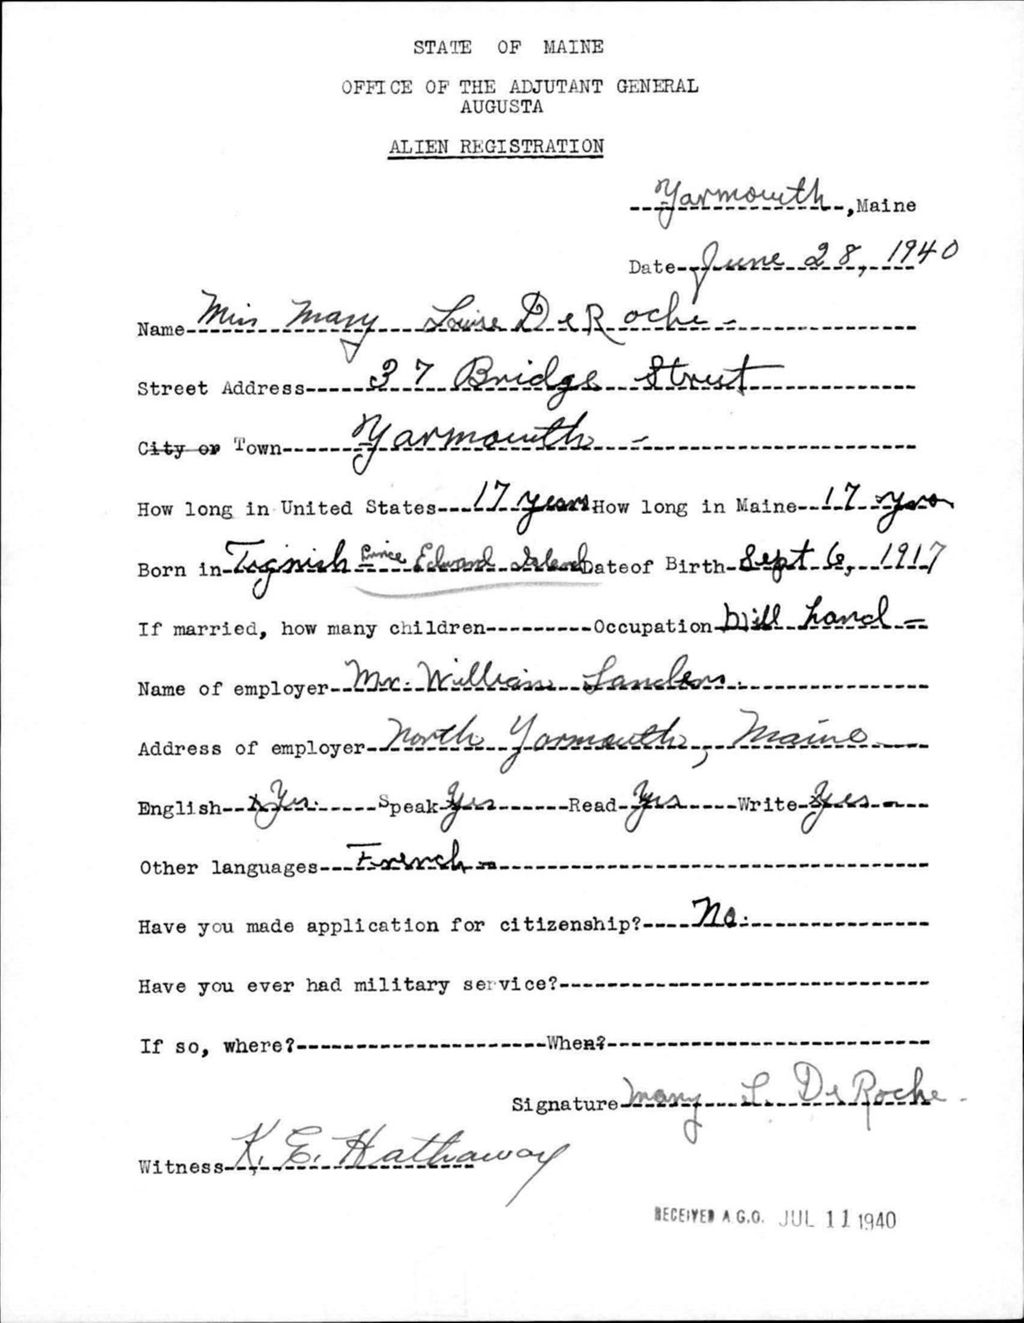 STATE OF MAINE
OFFICE OF THE ADJUTANT GENERAL
AUGUSTA
ALIEN REGISTRATION
Yarmouth, Maine
Date June 28, 1940
Name Miss Mary Louise DeRoche
Street Address 37 Bridge Street
City or Town Yarmouth
How long in United States 17 years How long in Maine 17 yrs
Born in Tignish Prince Edward Island Date of Birth Sept 6, 1917
If married, how many children Occupation Mill hand
Name of employer Mr. William Sanders
Address of employer North Yarmouth, Maine
English Yes. Speak Yes Read Yes Write Yes
Other languages French
Have you made application for citizenship? No.
Have you ever had military service?
If so, where? When?
Signature Mary L. DeRoche
Witness K. E. Hathaway
RECEIVED A.G.O. JUL 11 1940